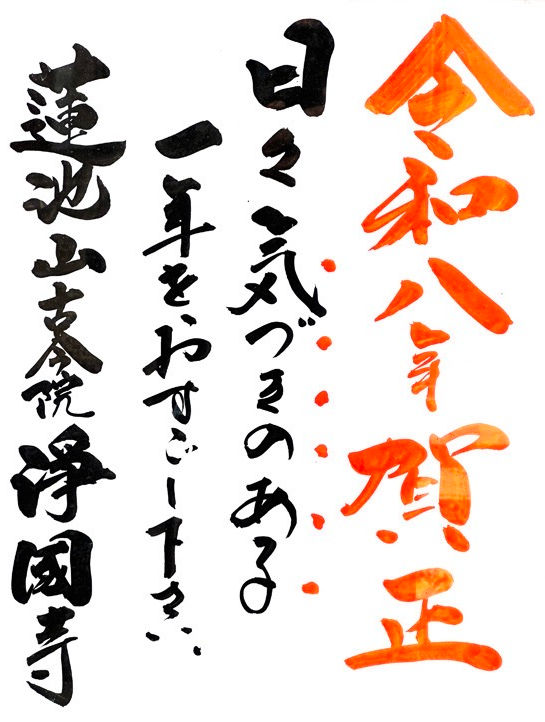 令和八年賀正
日々気づきのある
一年をおすごし下さい
蓮池山古琴院浄國寺